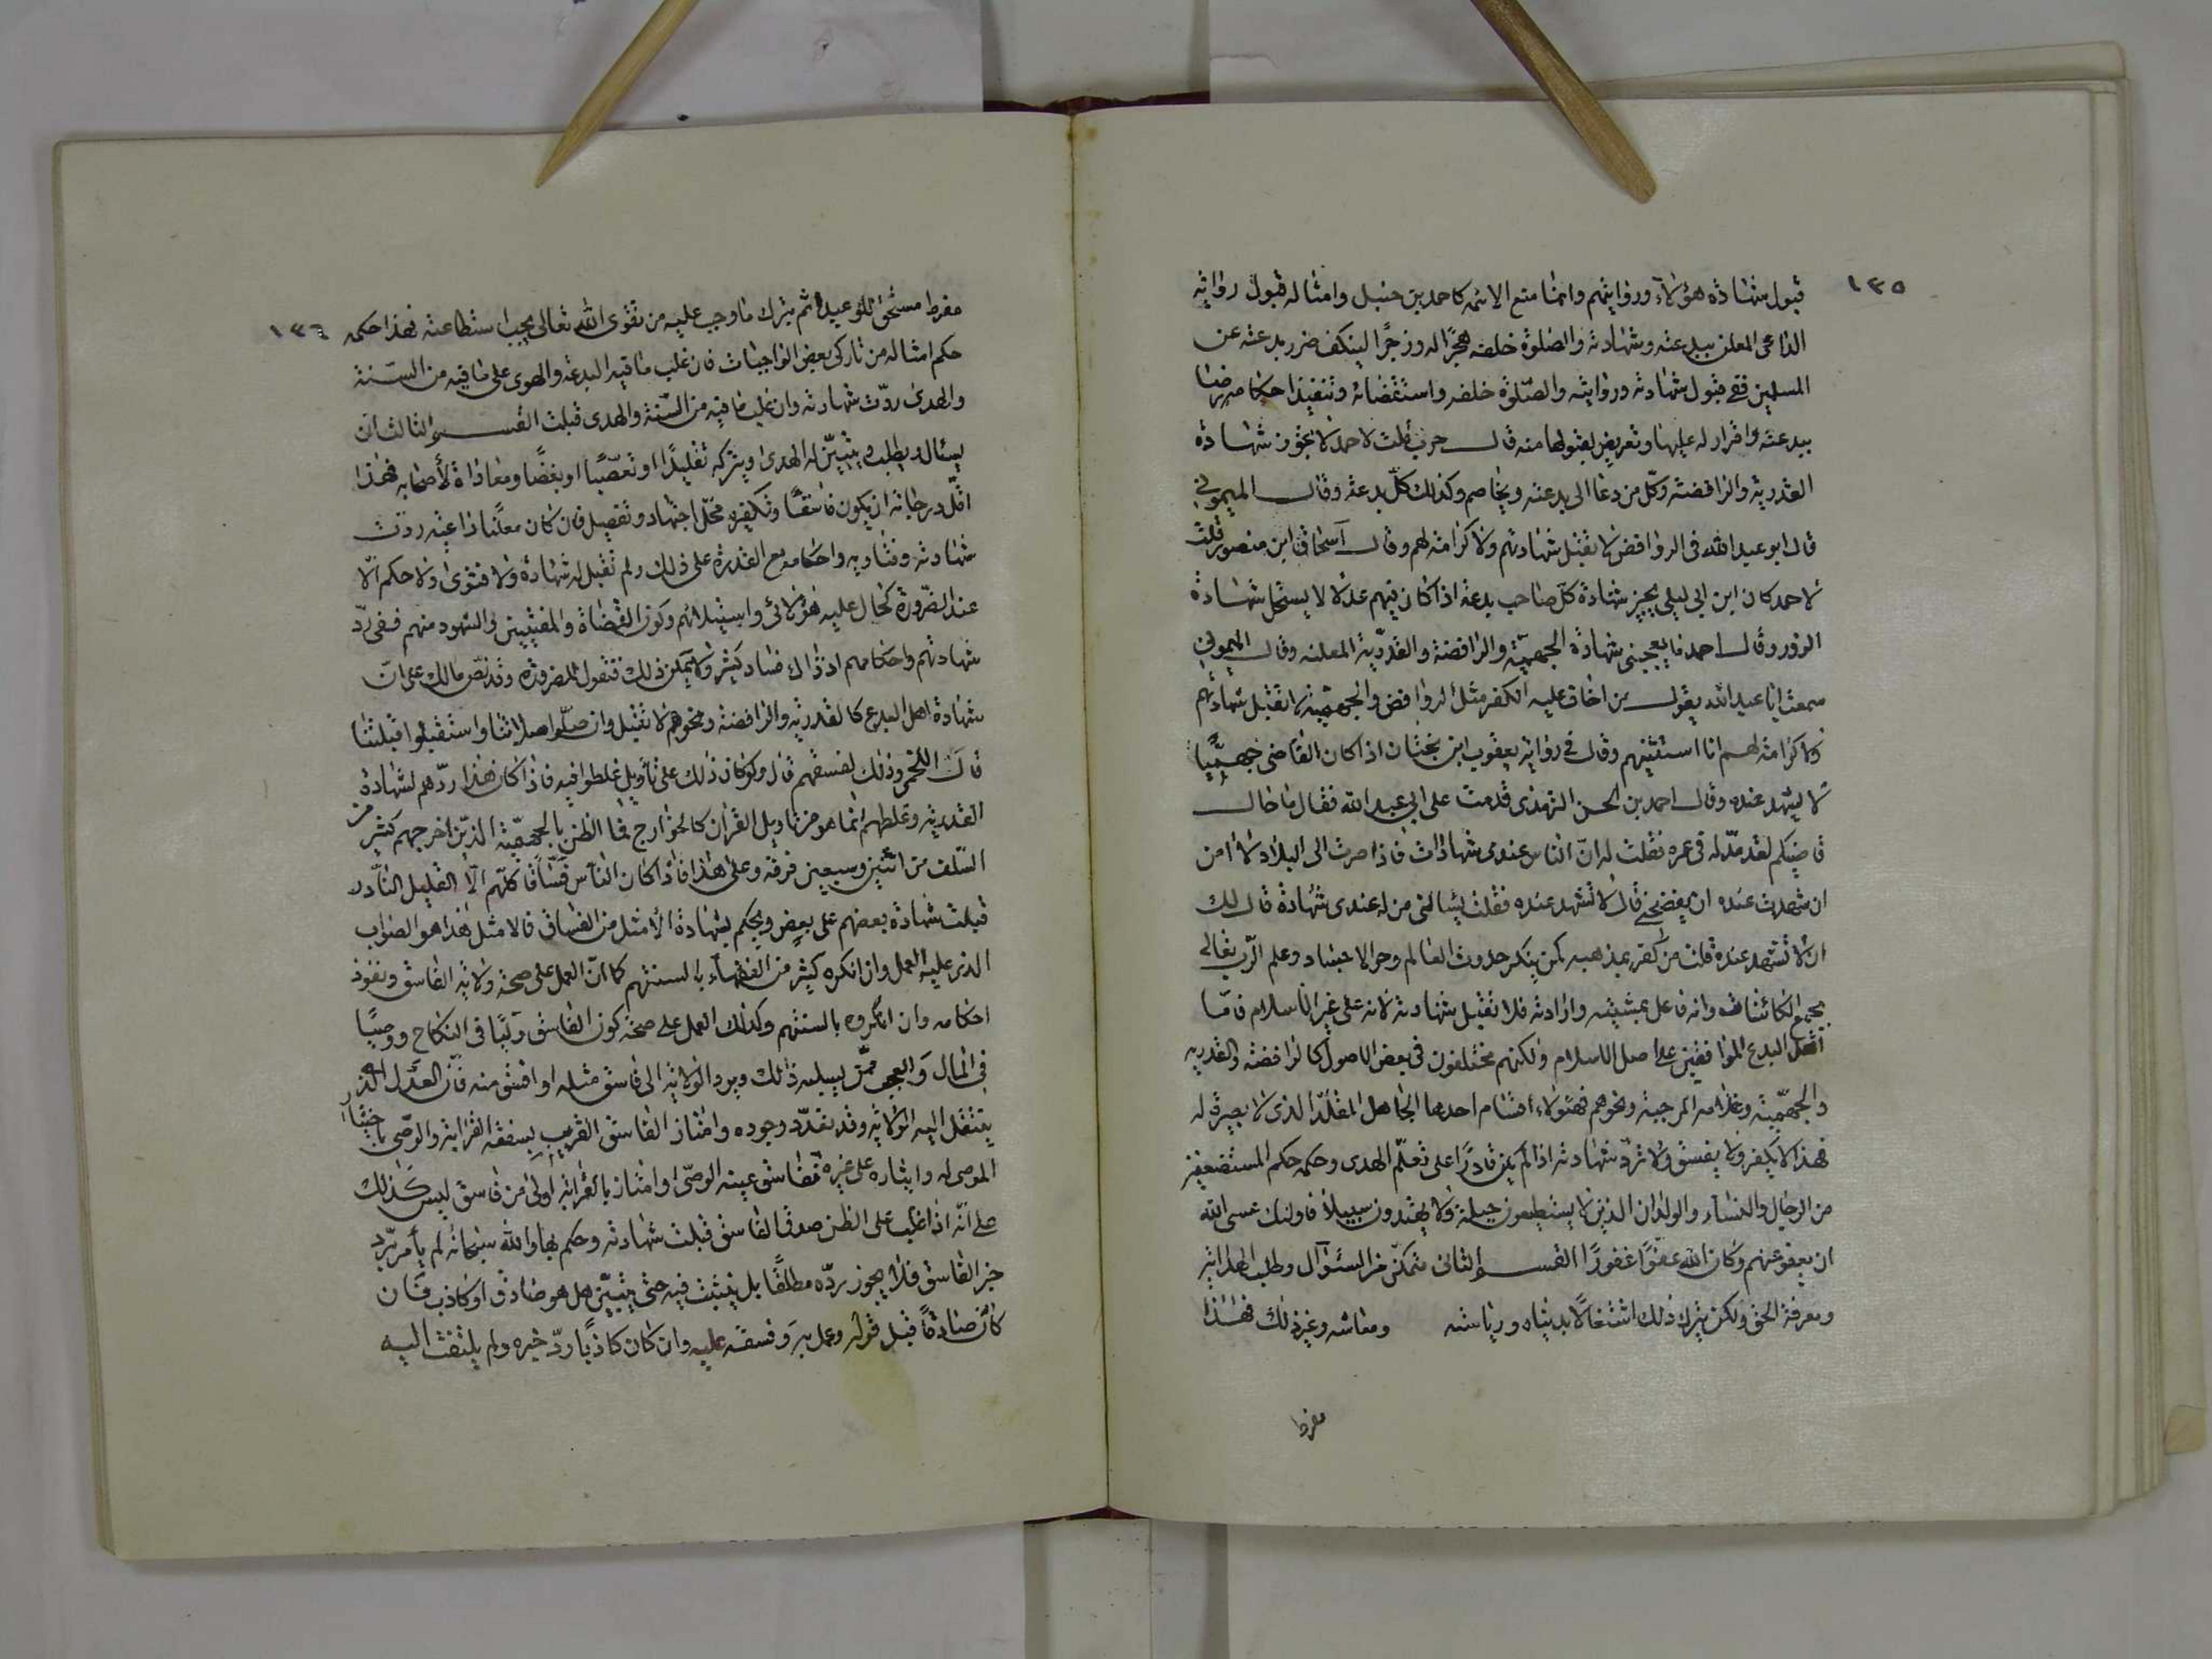 ١٣٥
قبول شهادة هؤلاء وروايتهم وانما منع الائمه كاحمد بن حنبل وامثاله قبول رواية
الداعى المعلن ببدعته وشهادته والصلوة خلفه هجرًا له وزجرًا لينكف ضرر بدعته عن
المسلمين ففى قبول شهادته وروايته والصّلوة خلفه واستقضائه وتنفيذ احكامه رضا
ببدعته واقرار له عليها وتعريض لقبولها منه قال حرب قلت لاحمد لا تجوز شهادة
القدرية والرافضة وكلّ من دعا الى بدعته ويخاصم وكذلك كلّ بدعة وقال الميمونى
قال ابو عبد الله فى الروافض لا تقبل شهادتهم ولا كرامة لهم وقال اسحاق ابن منصور قلت
لاحمد كان ابن ابى ليلى يجيز شهادة كلّ صاحب بدعة اذا كان فيهم عدلا لا يستحل شهادة
الزور وقال احمد ما يعجبنى شهادة الجهميّة والرافضة والقدريّة المعلنه وقال الميمونى
سمعت ابا عبد الله يقول من اخاف عليه الكفر مثل الروافض والجهمية لا تقبل شهادتهم
ولا كرامة لهم انا استثنيهم وقال فى رواية يعقوب ابن بختان اذا كان القاضى جهميًّا
لا ليشهد عنده وقال احمد بن الحسن الترمذى قدمت على ابى عبد الله فقال ما حال
قاضيكم لقد مدّ له فى عمره فقلت له انّ للناس عندى شهادات فاذا صرت الى البلاد لا امن
ان شهدت عنده ان يفضحنى قال لا تشهد عنده فقلت يسالنى من له عندى شهادة قال لك
ان لا تشهد عنده قلت من كفر بمذهبه كمن ينكر حدوث العالم وحر الاجساد وعلم الرّب تعالى
بجميع الكائنات وانه فاعل بمشيته وارادته فلا تقبل شهادته لانه على غير الاسلام فامّا
اهل البدع الموافقين على اصل الاسلام ولكنهم مختلفون فى بعض الاصول كالرافضة والقدريه
والجهميّة وغلاة المرجية ونحوهم فهؤلاء اقسام احدها الجاهل المقلّد الذى لا بصيرة له
فهذا لا يكفر ولا يفسق ولا تردّ شهادته اذا لم يكن قادرًا على تعلّم الهدى وحكمه حكم المستضعفين
من الرجال والنساء والولدان الذين لا يستطيعون حيلة ولا يهتدون سبيلاً فاولئك عسى الله
ان يعفو عنهم وكان الله عفوًّا غفورًا القسم الثانى متمكّن من السئوال وطلب الهداية
ومعرفة الحق ولكن يترك ذلك اشتغالا بدنياه ورياسته ومعاشه وغير ذلك فهذا
مفرط
١٣٦
مفرط مستحق للوعيد اثم بترك ما وجب عليه من تقوى الله تعالى بحسب استطاعته فهذا حكمه
حكم امثاله من تاركى بعض الواجبات فان غلب ما فيه البدعة والهوى على ما فيه من السّنة
والهدى ردّت شهادته وان غلب ما فيه من السّنة والهدى قبلت القسم الثالث ان
يسئال ويطلب ويتبيّن له الهدى ويتركه تقليدًا او تعصّبًا او بغضًا ومعاداة لأصحابه فهذا
اقلّ درجاته ان يكون فاسقًا وتكفيره محلّ اجتهاد وتفصيل فان كان معلنًا داعية ردّت
شهادته وفتاويه واحكامه مع القدرة على ذلك ولم تقبل له شهادة ولا فتوى ولا حكم الّا
عند الضّرورة كحال غلبة هؤلائ واستيلائهم وكون القضاة والمفتيين والشهود منهم ففى ردّ
شهادتهم واحكامهم اذ ذاك فساد كثير ولا يمكن ذلك فتقول للضرورة وقد نصّ مالك على انّ
شهادة اهل البدع كالقدرية والرافضة ونحوهم لا تقبل وان صلّوا صلاتنا واستقبلوا قبلتنا
قال اللخمى وذلك لفسقهم قال ولو كان ذلك على تأويل غلطوا فيه فاذا كان هذا ردّهم لشهادة
القدرية وغلطهم انما هو من تاويل القران كالخوارج فما الظن بالجهميّة الذين اخرجهم كثير من
السّلف من اثنتين وسبعين فرقة وعلى هذا فاذا كان الناس فسّاقًا كلّهم الّا القليل النّادر
قبلت شهادة بعضهم على بعض ويحكم بشهادة الأمثل من الفساق فالامثل هذا هو الصواب
الذى عليه العمل وان انكره كثير من الفقهاء بالسنتهم كما انّ العمل على صحة ولاية الفاسق ونفوذ
احكامه وان انكروه بالسنتهم وكذلك العمل على صحة كون الفاسق وليًّا فى النكاح ووصيًّا
فى المال والعجب ممّن يسلبه ذلك ويرد الولاية الى فاسق مثله او افسق منه فانّ العدل الذى
ينتقل اليه الولاية وقد تعذّر وجوده وامتاز الفاسق القريب بسفقة القرابة والوصّى باختيار
الموصى له وايثاره على غيره ففاسق عينه الوصّى او امتاز بالقرابة اولى من فاسق ليس كذلك
على انّه اذا غلب على الظن صدق الفاسق قبلت شهادته وحكم بها والله سبحانه لم يأمر بردّ
خبر الفاسق فلا يجوز ردّه مطلقًا بل يتثبت فيه حتى يتبيّن هل هو صادق او كاذب فان
كان صادقًا قبل قوله وعمل به وفسقه عليه وان كان كاذبًا ردّ خبره ولم يلتفت اليه